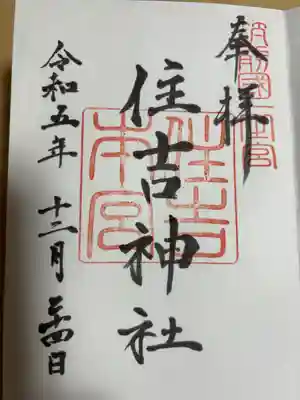 奉拝
筑前國一之宮
住吉神社
住吉
本宮
令和五年 十二月 二十四日